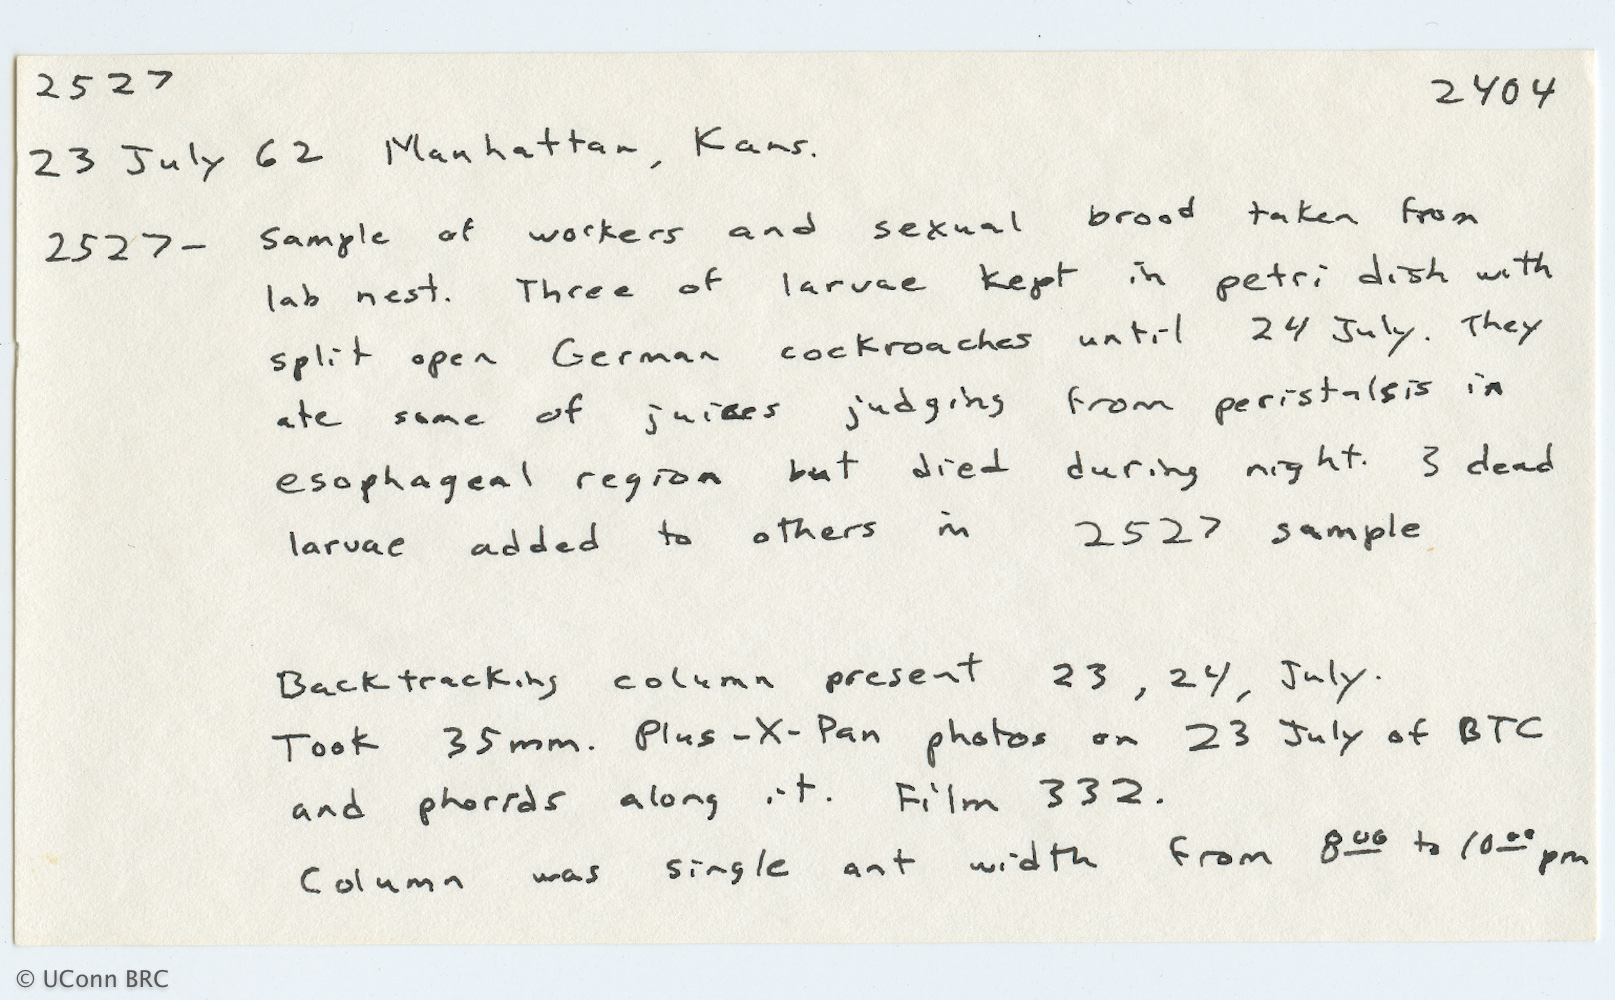 2527 2404
23 July 62 Manhattan, Kans.
2527- Sample of workers and sexual brood taken from
lab nest. Three of larvae kept in petri dish with
split open German cockroaches until 24 July. They
ate some of juices judging from peristalsis in
esophageal region but died during night. 3 dead
larvae added to others in 2527 sample
Backtracking column present 23, 24, July.
Took 35mm. Plus-X-Pan photos on 23 July of BTC
and phorids along it. Film 332.
Column was single ant width from 8:00 to 10:00 pm
© UConn BRC